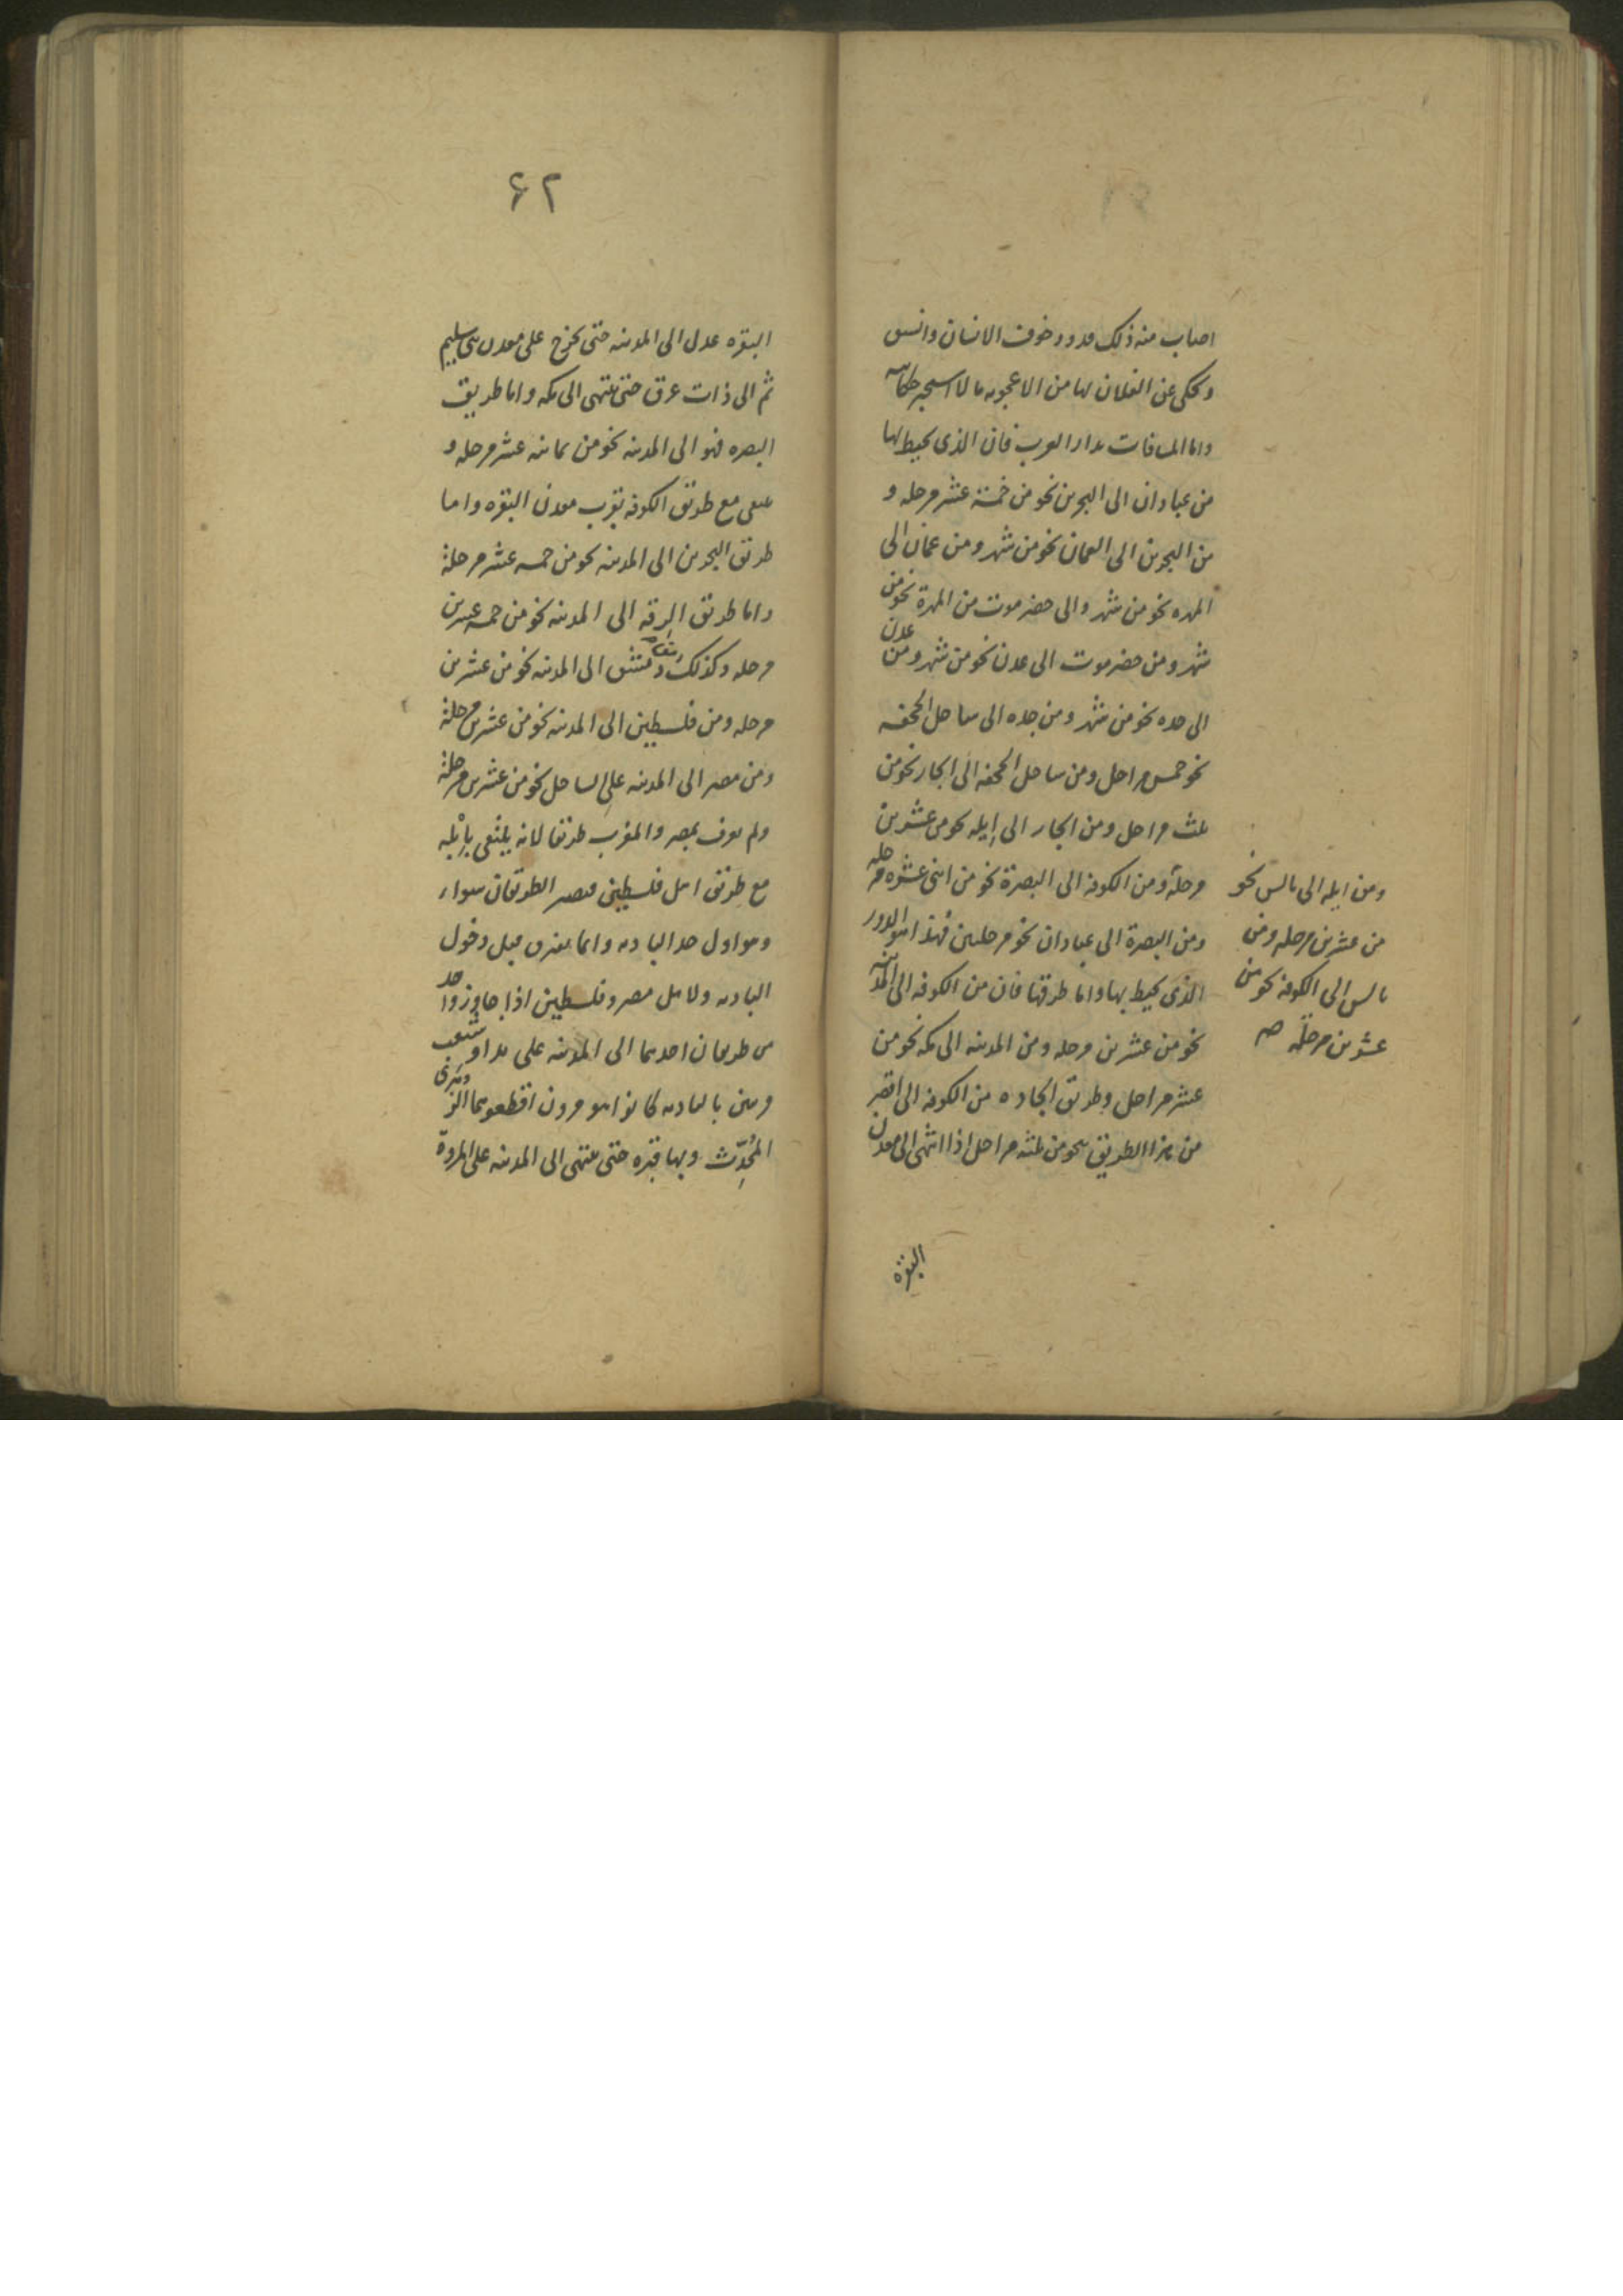 اصاب منه ذلك خوف الانسان وانشق
ويحكى عن الغلان بها من الاعجوبه ما لا استجيز حكايته
واما المسافات بدار العرب فان الذى يحيط بها
من عبادان الى البحرين نحو من خمسة عشر مرحله و
من البحرين الى العمان نحو من شهر ومن عمان الى
المهره نحو من شهر والى حضرموت من المهرة نحو من
شهر ومن حضرموت الى عدن نحو من شهر ومن عدن
الى جده نحو من شهر ومن جده الى ساحل الجحفه
نحو خمس مراحل ومن ساحل الجحفه الى الجار نحو من
ثلث مراحل ومن الجار الى إيله نحو من عشرين
مرحلة ومن الكوفه الى البصرة نحو من اثنى عشره مرحله
ومن البصرة الى عبادان نحو مرحلتين فهذا هو الدور
الذى يحيط بها واما طرقها فان من الكوفه الى المدينه
نحو من عشرين مرحله ومن المدينه الى مكه نحو من
عشر مراحل وطريق الجاده من الكوفه الى اقصر
من هذا الطريق نحو من ثلثه مراحل اذا انتهى الى معدن
النقره
ومن ايله الى بالس نحو
من عشرين مرحله ومن
بالس الى الكوفه نحو من
عشرين مرحلة صح
۶۲
النقره عدل الى المدينه حتى يخرج على معدن بنى سليم
ثم الى ذات عرق حتى ينتهى الى مكه واما طريق
البصره فهو الى المدينه نحو من ثمانيه عشر مرحله و
يلتقى مع طريق الكوفه بقرب معدن النقره واما
طريق البحرين الى المدينه نحو من خمسه عشر مرحلة
واما طريق الرقه الى المدينه نحو من خمسه عشرين
مرحله وكذلك دمشق الى المدينه نحو من عشرين
مرحله ومن فلسطين الى المدينه نحو من عشرين مرحلة
ومن مصر الى المدينه على الساحل نحو من عشرين مرحلة
ولم نعرف بمصر والمغرب طريقا لانه يلتقى بإيله
مع طريق اهل فلسطين فيصير الطريقان سواء
وهو اول حد الباديه وانما يفترق قبل دخول
الباديه ولاهل مصر وفلسطين اذا جاوزوا حد
طريقان احدهما الى المدينه على بدا وشغب
بالباديه كانوا بنو مرون اقطعوهما الزهرى
المُحدِّث وبها قبره حتى ينتهى الى المدينه على المروة